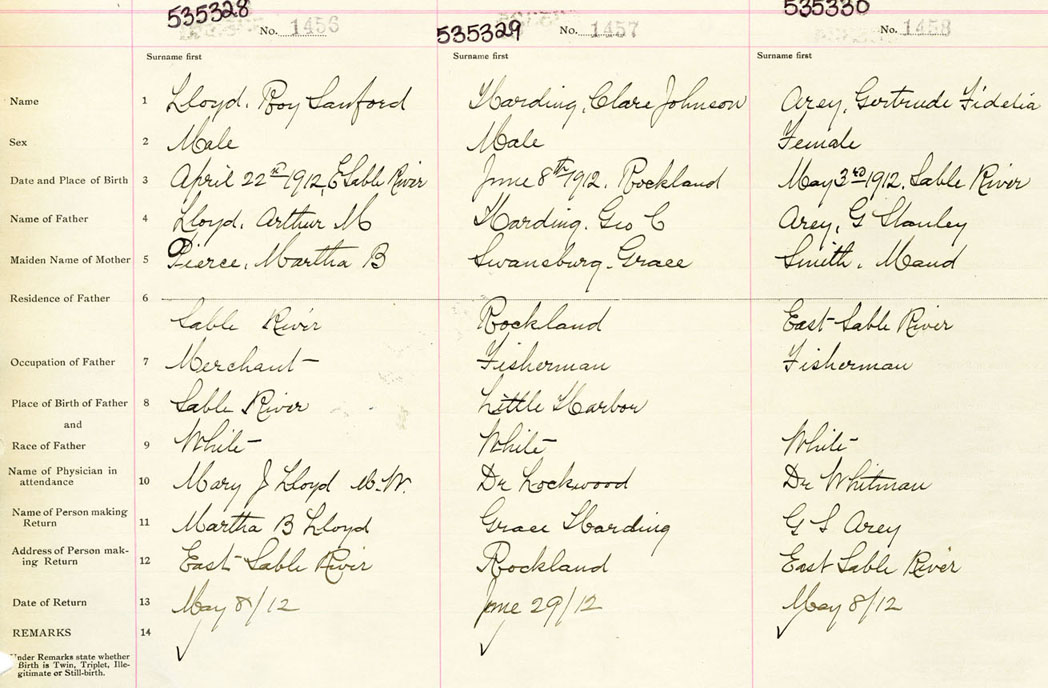 535328 535329 535330
No. 1456 No. 1457 No. 1458
Surname first Surname first Surname first
Name 1 Lloyd. Roy Sanford Harding, Clare Johnson Arey, Gertrude Fidelia
Sex 2 Male Male Female
Date and Place of Birth 3 April 22nd 1912, E Sable River June 8th 1912. Rockland May 3rd 1912. Sable River
Name of Father 4 Lloyd. Arthur M Harding. Geo C Arey, G Stanley
Maiden Name of Mother 5 Pierce, Martha B Swansburg. Grace Smith. Maud
Residence of Father 6
Sable River Rockland East Sable River
Occupation of Father 7 Merchant Fisherman Fisherman
Place of Birth of Father 8 Sable River Little Harbor
and
Race of Father 9 White White White
Name of Physician in
attendance 10 Mary J Lloyd M.W. Dr Lockwood Dr Whitman
Name of Person making
Return 11 Martha B Lloyd Grace Harding G S Arey
Address of Person mak-
ing Return 12 East Sable River Rockland East Sable River
Date of Return 13 May 8/12 June 29/12 May 8/12
REMARKS 14
Under Remarks state whether
Birth is Twin, Triplet, Ille-
gitimate or Still-birth.